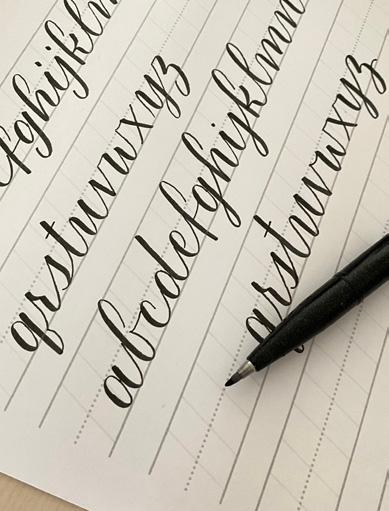 efghijklm
qrstuvwxyz
abcdefghijklmn
qrstuvwxyz